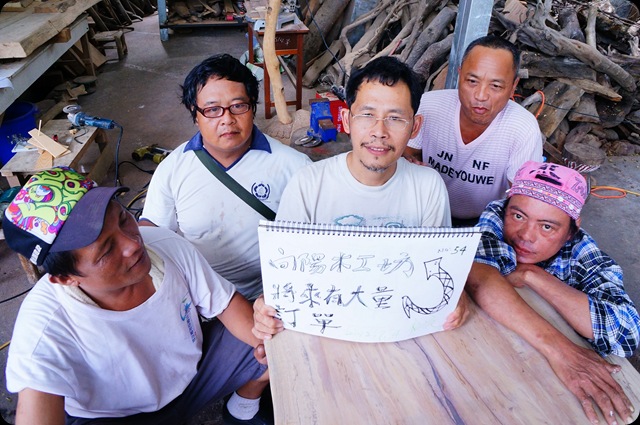 向陽木工坊
NO. 54
將來有大量
訂單
JN NF
MADEYOUWE